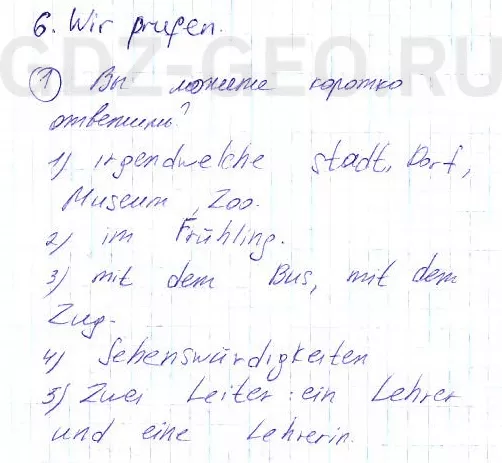 GDZ-GEO.RU
6. Wir prufen.
① Вы можете коротко
ответить?
1) irgendwelche stadt, Dorf,
Museum, Zoo.
2) im Frühling.
3) mit dem Bus, mit dem
Zug.
4) Sehenswürdigkeiten
5) Zwei Leiter: ein Lehrer
und eine Lehrerin.